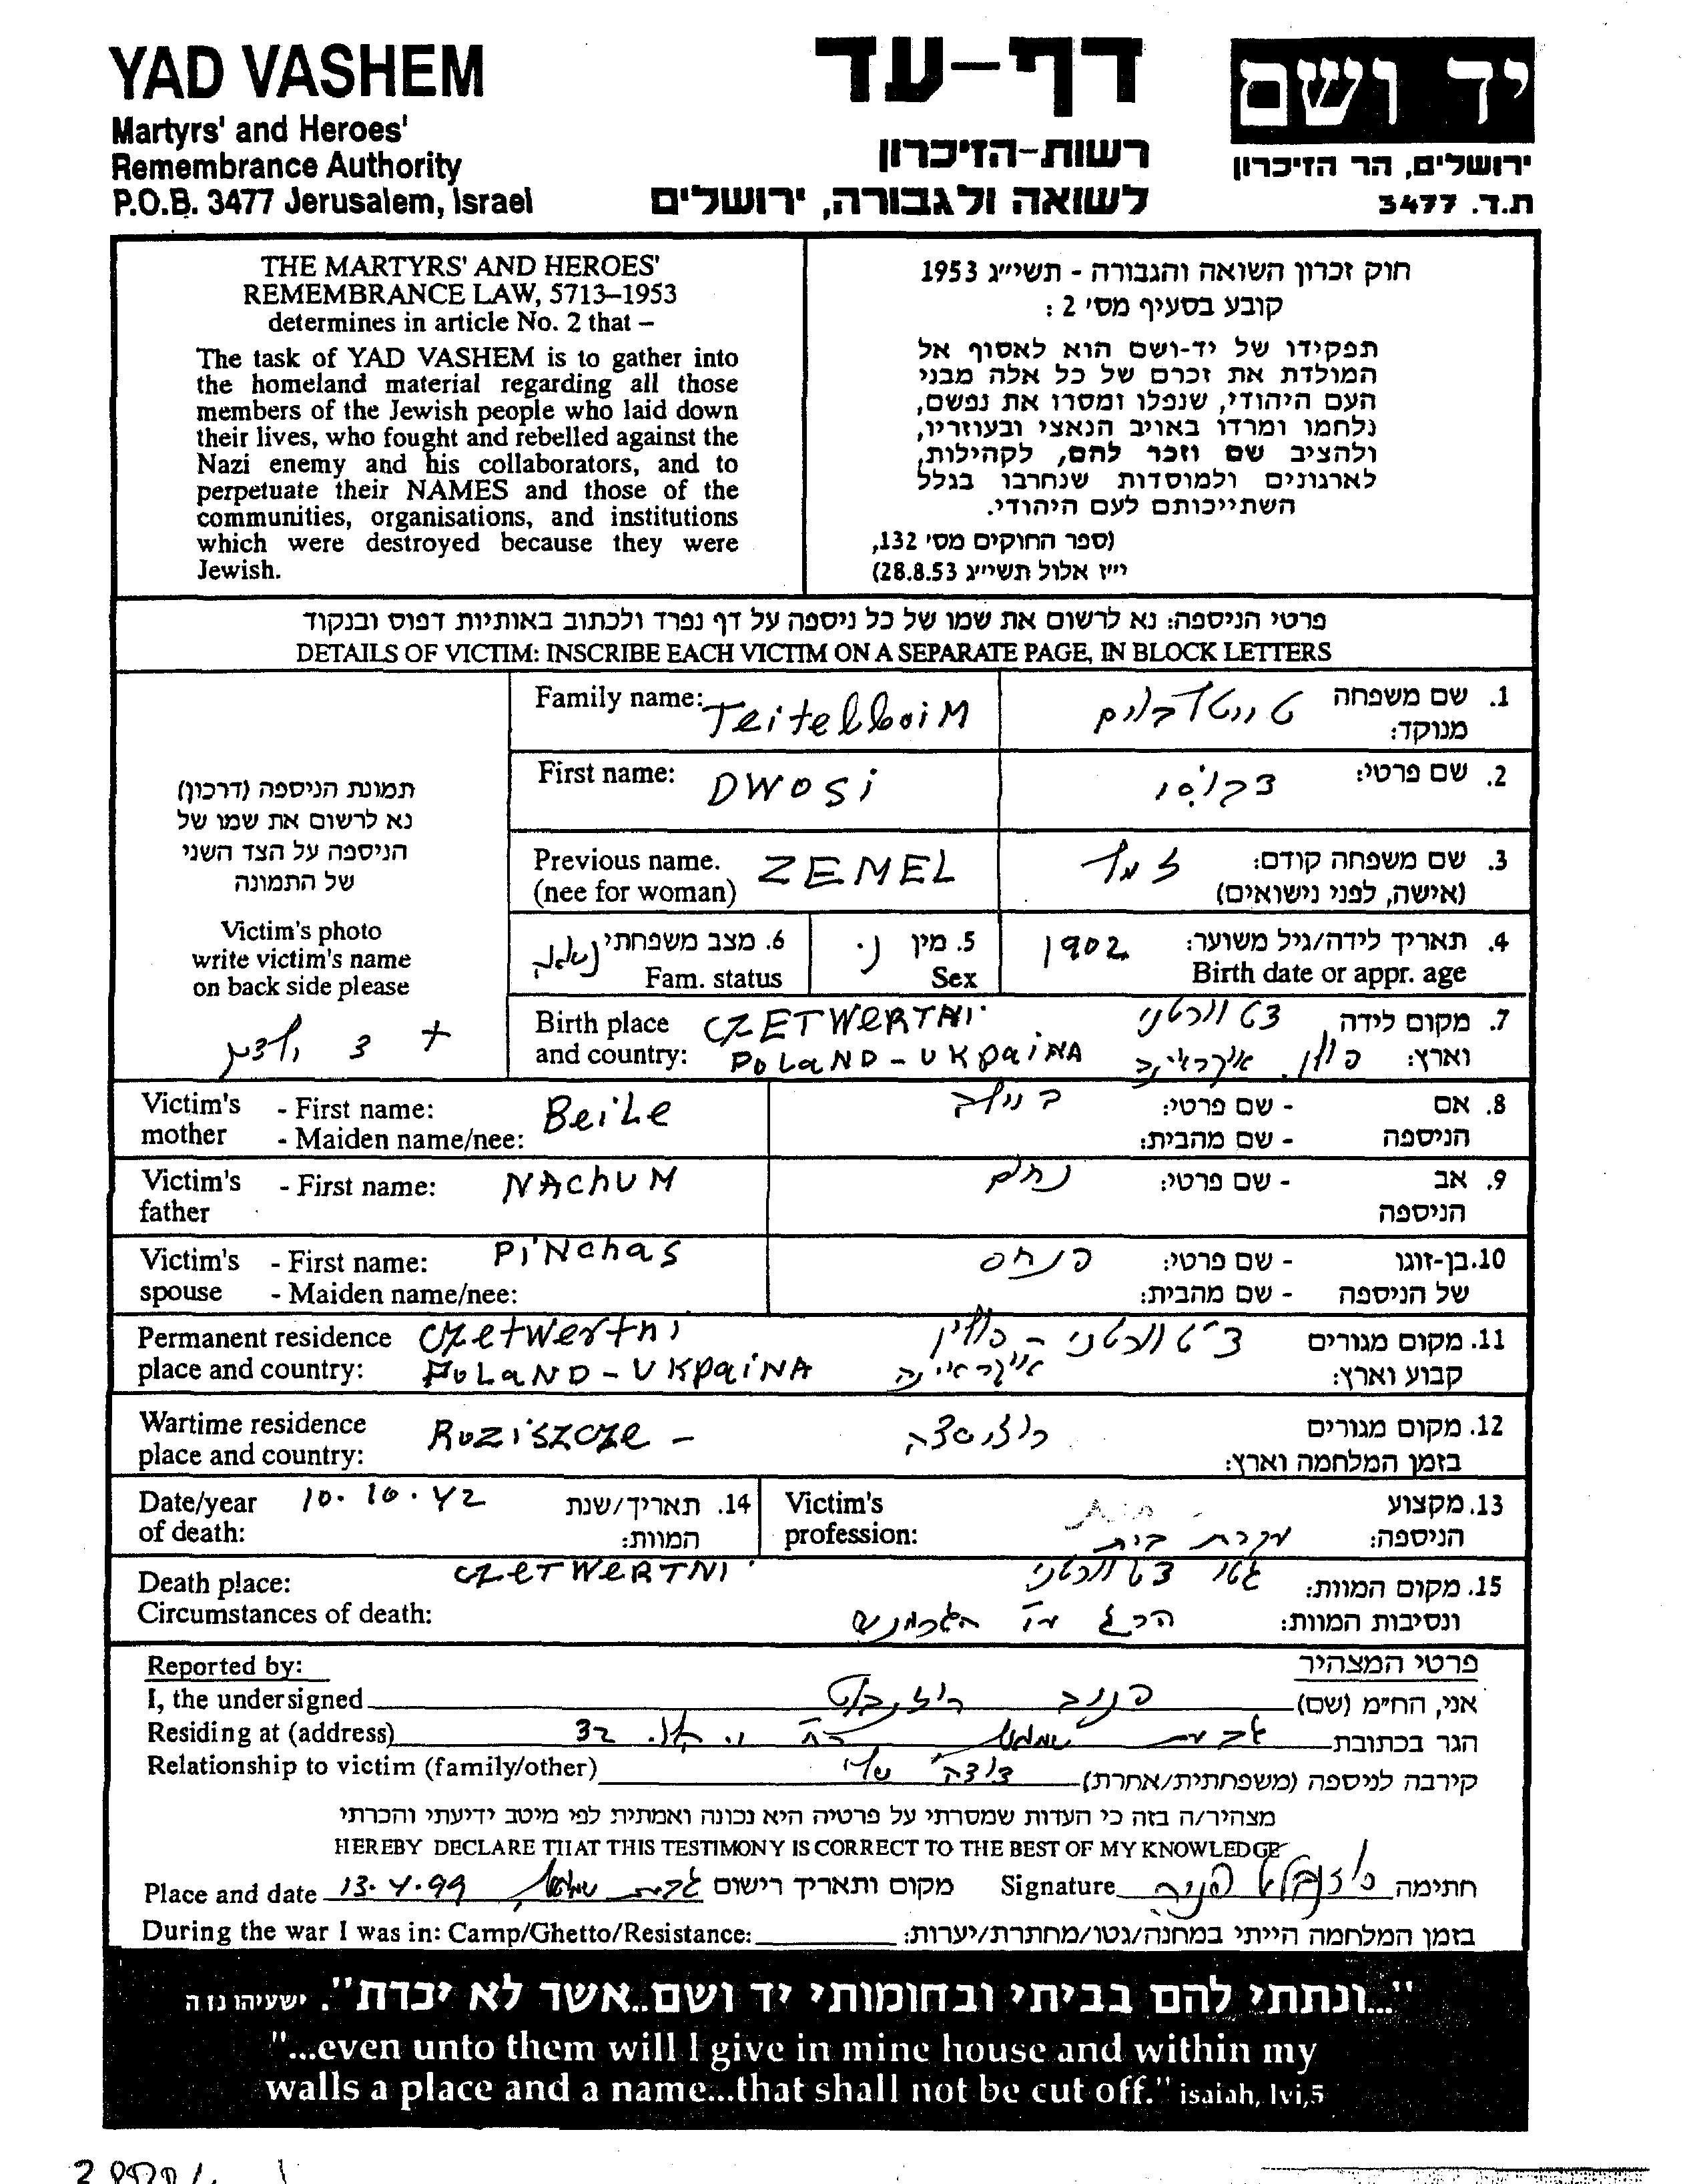 YAD VASHEM
Martyrs' and Heroes'
Remembrance Authority
P.O.B. 3477 Jerusalem, Israel
דף-עד
רשות-הזיכרון
לשואה ולגבורה, ירושלים
יד ושם
ירושלים, הר הזיכרון
ת.ד. 3477
THE MARTYRS' AND HEROES'
REMEMBRANCE LAW, 5713–1953
determines in article No. 2 that –
The task of YAD VASHEM is to gather into
the homeland material regarding all those
members of the Jewish people who laid down
their lives, who fought and rebelled against the
Nazi enemy and his collaborators, and to
perpetuate their NAMES and those of the
communities, organisations, and institutions
which were destroyed because they were
Jewish.
חוק זכרון השואה והגבורה - תשי״ג 1953
קובע בסעיף מס' 2 :
תפקידו של יד-ושם הוא לאסוף אל
המולדת את זכרם של כל אלה מבני
העם היהודי, שנפלו ומסרו את נפשם,
נלחמו ומרדו באויב הנאצי ובעוזריו,
ולהציב שם וזכר להם, לקהילות,
לארגונים ולמוסדות שנחרבו בגלל
השתייכותם לעם היהודי.
(ספר החוקים מס' 132,
י״ז אלול תשי״ג 28.8.53)
פרטי הניספה: נא לרשום את שמו של כל ניספה על דף נפרד ולכתוב באותיות דפוס ובנקוד
DETAILS OF VICTIM: INSCRIBE EACH VICTIM ON A SEPARATE PAGE, IN BLOCK LETTERS
תמונת הניספה (דרכון)
נא לרשום את שמו של
הניספה על הצד השני
של התמונה
Victim's photo
write victim's name
on back side please
+ 3 ילדים
Family name: TeitellboiM טייטלבוים 1. שם משפחה מנוקד:
First name: DWOSi דבוסי 2. שם פרטי:
Previous name. (nee for woman) ZEMEL זמל 3. שם משפחה קודם: (אישה, לפני נישואים)
6. מצב משפחתי נשואה Fam. status 5. מין נ. Sex 1902 4. תאריך לידה/גיל משוער: Birth date or appr. age
Birth place CZETWERTNI צטוורטני 7. מקום לידה
and country: POLAND - UKPAINA פולין. אוקראינה וארץ:
Victim's mother - First name: BeiLe ביילה - שם פרטי: 8. אם
- Maiden name/nee: - שם מהבית: הניספה
Victim's father - First name: NAChUM נחום - שם פרטי: 9. אב הניספה
Victim's spouse - First name: PiNChaS פנחס - שם פרטי: 10. בן-זוגו
- Maiden name/nee: - שם מהבית: של הניספה
Permanent residence CzetWertni צ'טוורטני - פולין 11. מקום מגורים
place and country: POLAND - UKPAiNA אוקראינה קבוע וארץ:
Wartime residence RoziSZCZe - רוז'ישצה 12. מקום מגורים
place and country: בזמן המלחמה וארץ:
Date/year of death: 10.10.42 14. תאריך/שנת המוות:
Victim's profession: עקרת בית 13. מקצוע הניספה:
Death place: CZETWERTNI גטו צטוורטני 15. מקום המוות:
Circumstances of death: הרג ע״י הגרמנים ונסיבות המוות:
Reported by: פרטי המצהיר
I, the undersigned פניה רוזנבלט אני, החי״מ (שם)
Residing at (address) גבעת שמואל 32 הגר בכתובת
Relationship to victim (family/other) דודה שלי קירבה לניספה (משפחתית/אחרת)
מצהיר/ה בזה כי העדות שמסרתי על פרטיה היא נכונה ואמתית לפי מיטב ידיעתי והכרתי
HEREBY DECLARE THAT THIS TESTIMONY IS CORRECT TO THE BEST OF MY KNOWLEDGE
Place and date 13.4.99 גבעת שמואל מקום ותאריך רישום Signature רוזנבלט פניה חתימה
During the war I was in: Camp/Ghetto/Resistance: בזמן המלחמה הייתי במחנה/גטו/מחתרת/יערות:
"...ונתתי להם בביתי ובחומותי יד ושם..אשר לא יכרת". ישעיהו נו ה
"...even unto them will I give in mine house and within my
walls a place and a name...that shall not be cut off." isaiah, lvi,5